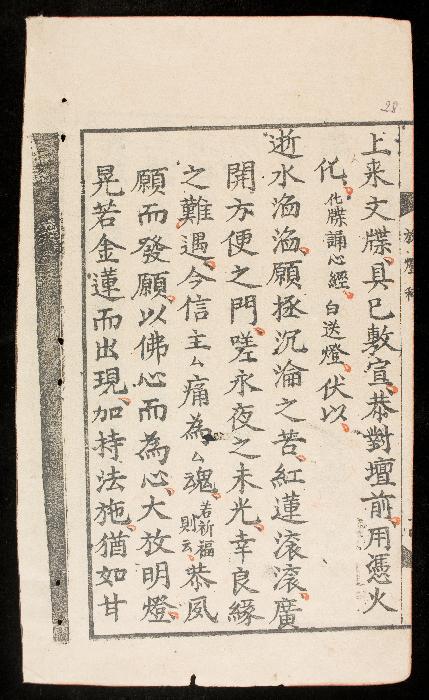 28
上来文牒具已敷宣恭對壇前用憑火
化化牒誦心經白送燈伏以
逝水滔滔願拯沉淪之苦紅蓮滚滚廣
開方便之門嗟永夜之未光幸良緣
之難遇今信主厶痛為厶魂若祈福則云恭夙
願而發願以佛心而為心大放明燈
晃若金蓮而出現加持法施猶如甘